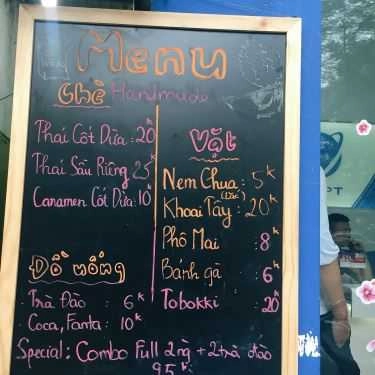 Menu
Chè Handmade
Thái Cốt Dừa: 20k
Thái Sầu Riêng: 25k
Canamen Cốt Dừa: 10k
Vặt
Nem Chua: 5k
(Dắc)
Khoai Tây: 20k
Phô Mai: 8k
Bánh gà: 6k
Tobokki: 20k
Đồ uống
Trà Đào: 6k
Coca, Fanta: 10k
Special: Combo Full 2ng + 2 trà đào
95k
PT